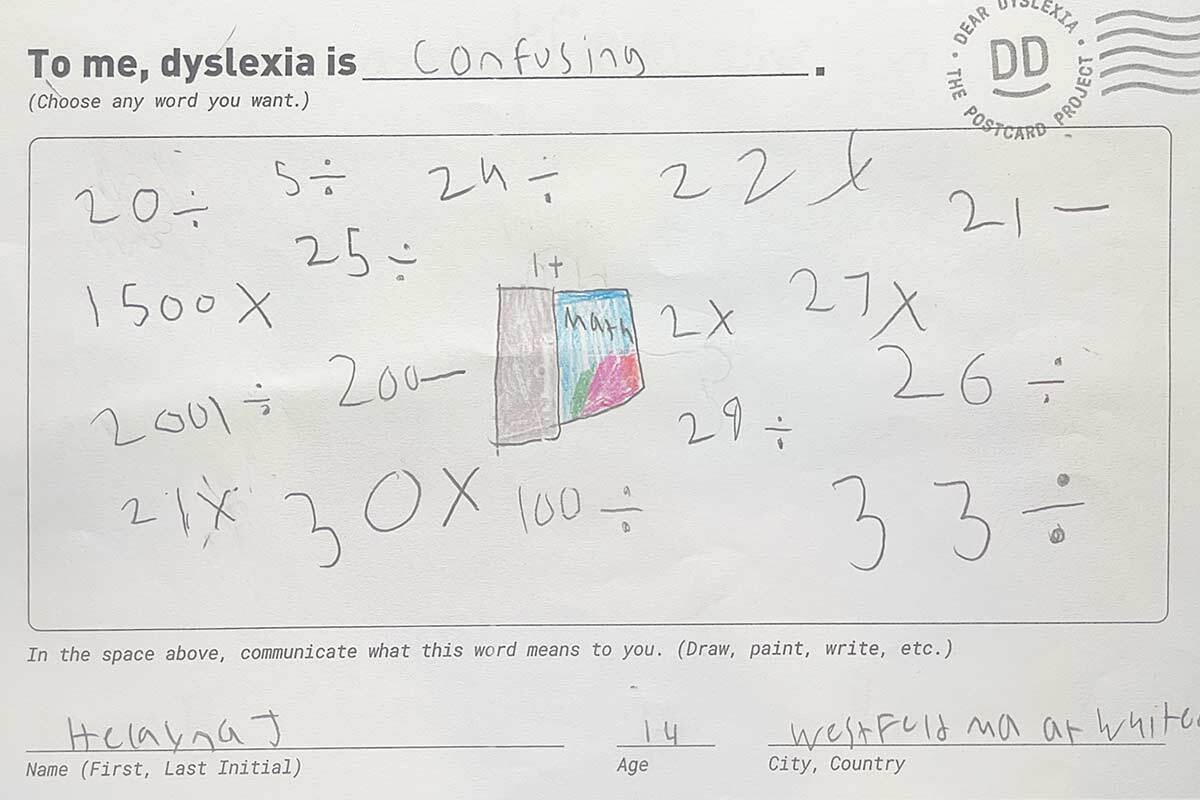 To me, dyslexia is confusing.
(Choose any word you want.)
DEAR DYSLEXIA • THE POSTCARD PROJECT •
DD
20 ÷ 5 ÷ 24 ÷ 22 x 21 —
25 ÷
1500 X
1+
Math
2 X 27 X
2001 ÷ 200 — 26 ÷
29 ÷
21 X 30 X 100 ÷ 33 ÷
In the space above, communicate what this word means to you. (Draw, paint, write, etc.)
Helayna J 14 Westfeld ma at White
Name (First, Last Initial) Age City, Country